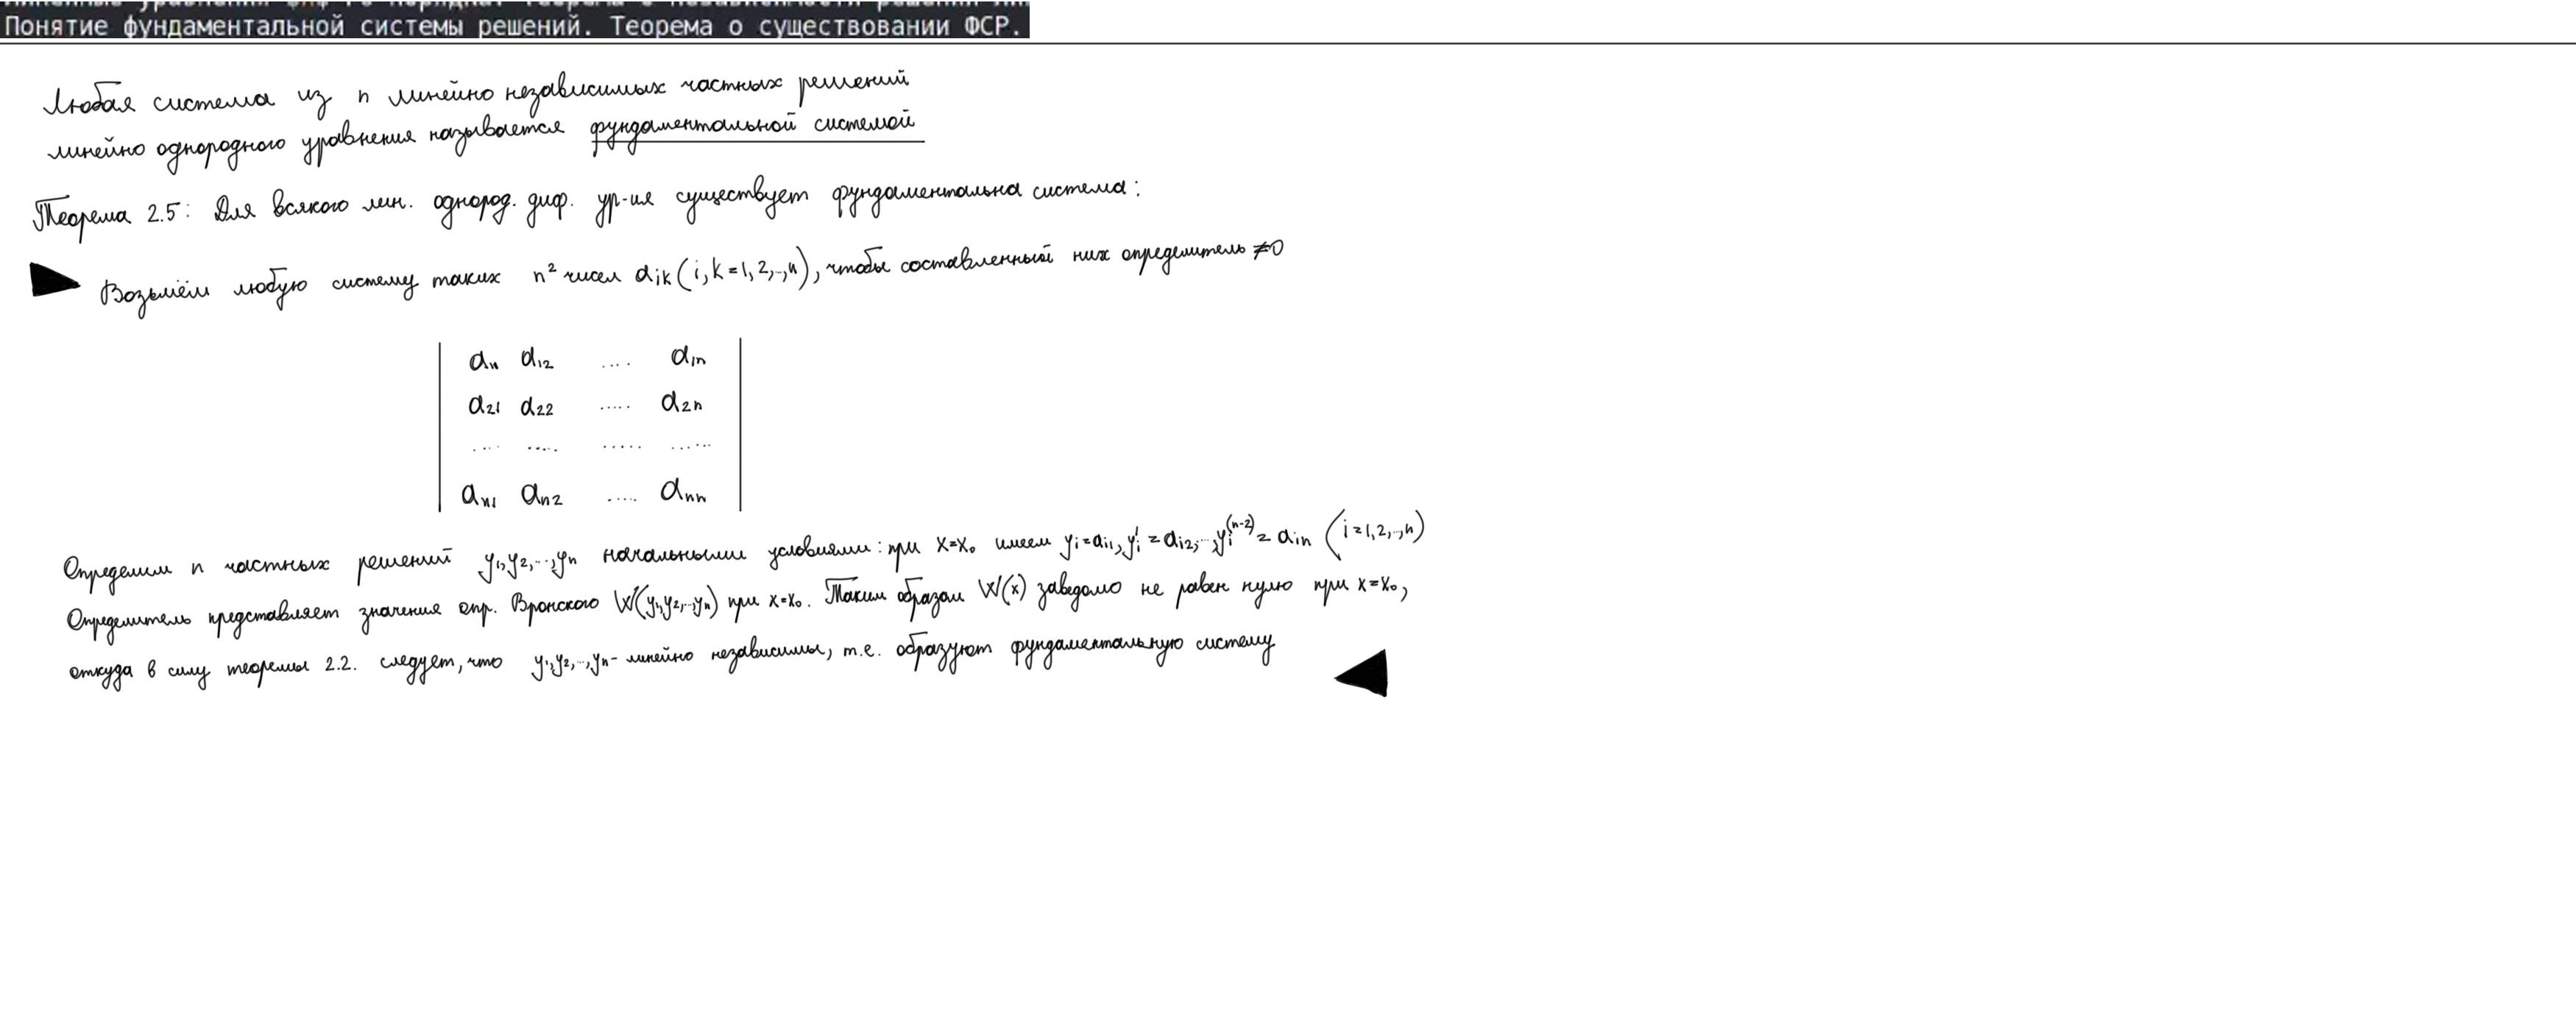 Понятие фундаментальной системы решений. Теорема о существовании ФСР.
Любая система из n линейно независимых частных решений
линейно однородного уравнения называется фундаментальной системой
Теорема 2.5: Для всякого лин. однород. диф. ур-ия существует фундаментальна система:
Возьмём любую систему таких n² чисел a_ik (i, k = 1, 2, .., n), чтобы составленный них определитель ≠0
a_11 a_12 .... a_1n
a_21 a_22 ..... a_2n
.... ..... ..... ......
a_n1 a_n2 .... a_nn
Определим n частных решений y_1, y_2, ..., y_n начальными условиями: при x=x_0 имеем y_i=a_i1, y_i'=a_i2, ..., y_i^(n-2)=a_in (i=1,2,..,n)
Определитель представляет значения опр. Вронского W(y_1, y_2, .., y_n) при x=x_0. Таким образом W(x) заведомо не равен нулю при x=x_0,
откуда в силу теоремы 2.2. следует, что y_1, y_2, .., y_n - линейно независимы, т.е. образуют фундаментальную систему